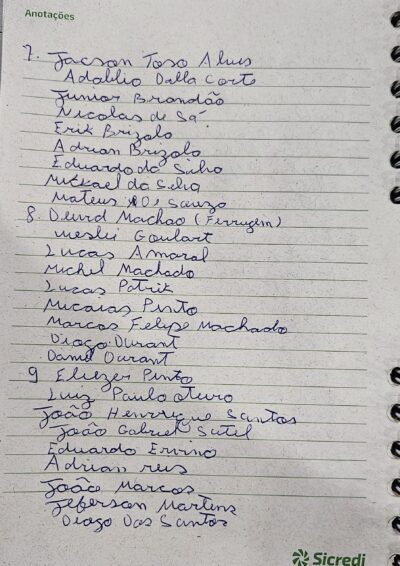 Anotações
7. Jacson Toso Alves
Adablio Dalla Corte
Junior Brandão
Nicolas de Sá
Erik Brizolo
Adrian Brizolo
Eduardo da Silva
Mickael da Silva
Mateus
8. Machao (Ferrugem)
Weslei Goulart
Lucas Amaral
Michel Machado
Lucas Patrik
Micaias Pinto
Marcos Felipe Machado
Diogo Durant
Daniel Durant
9 Eliezer Pinto
Luiz Paulo
João Henrrique Santos
João Gabriel Sutil
Eduardo Ervino
Adrian reis
João Marcos
Jeferson Martens
Diogo Dos Santos
Sicredi